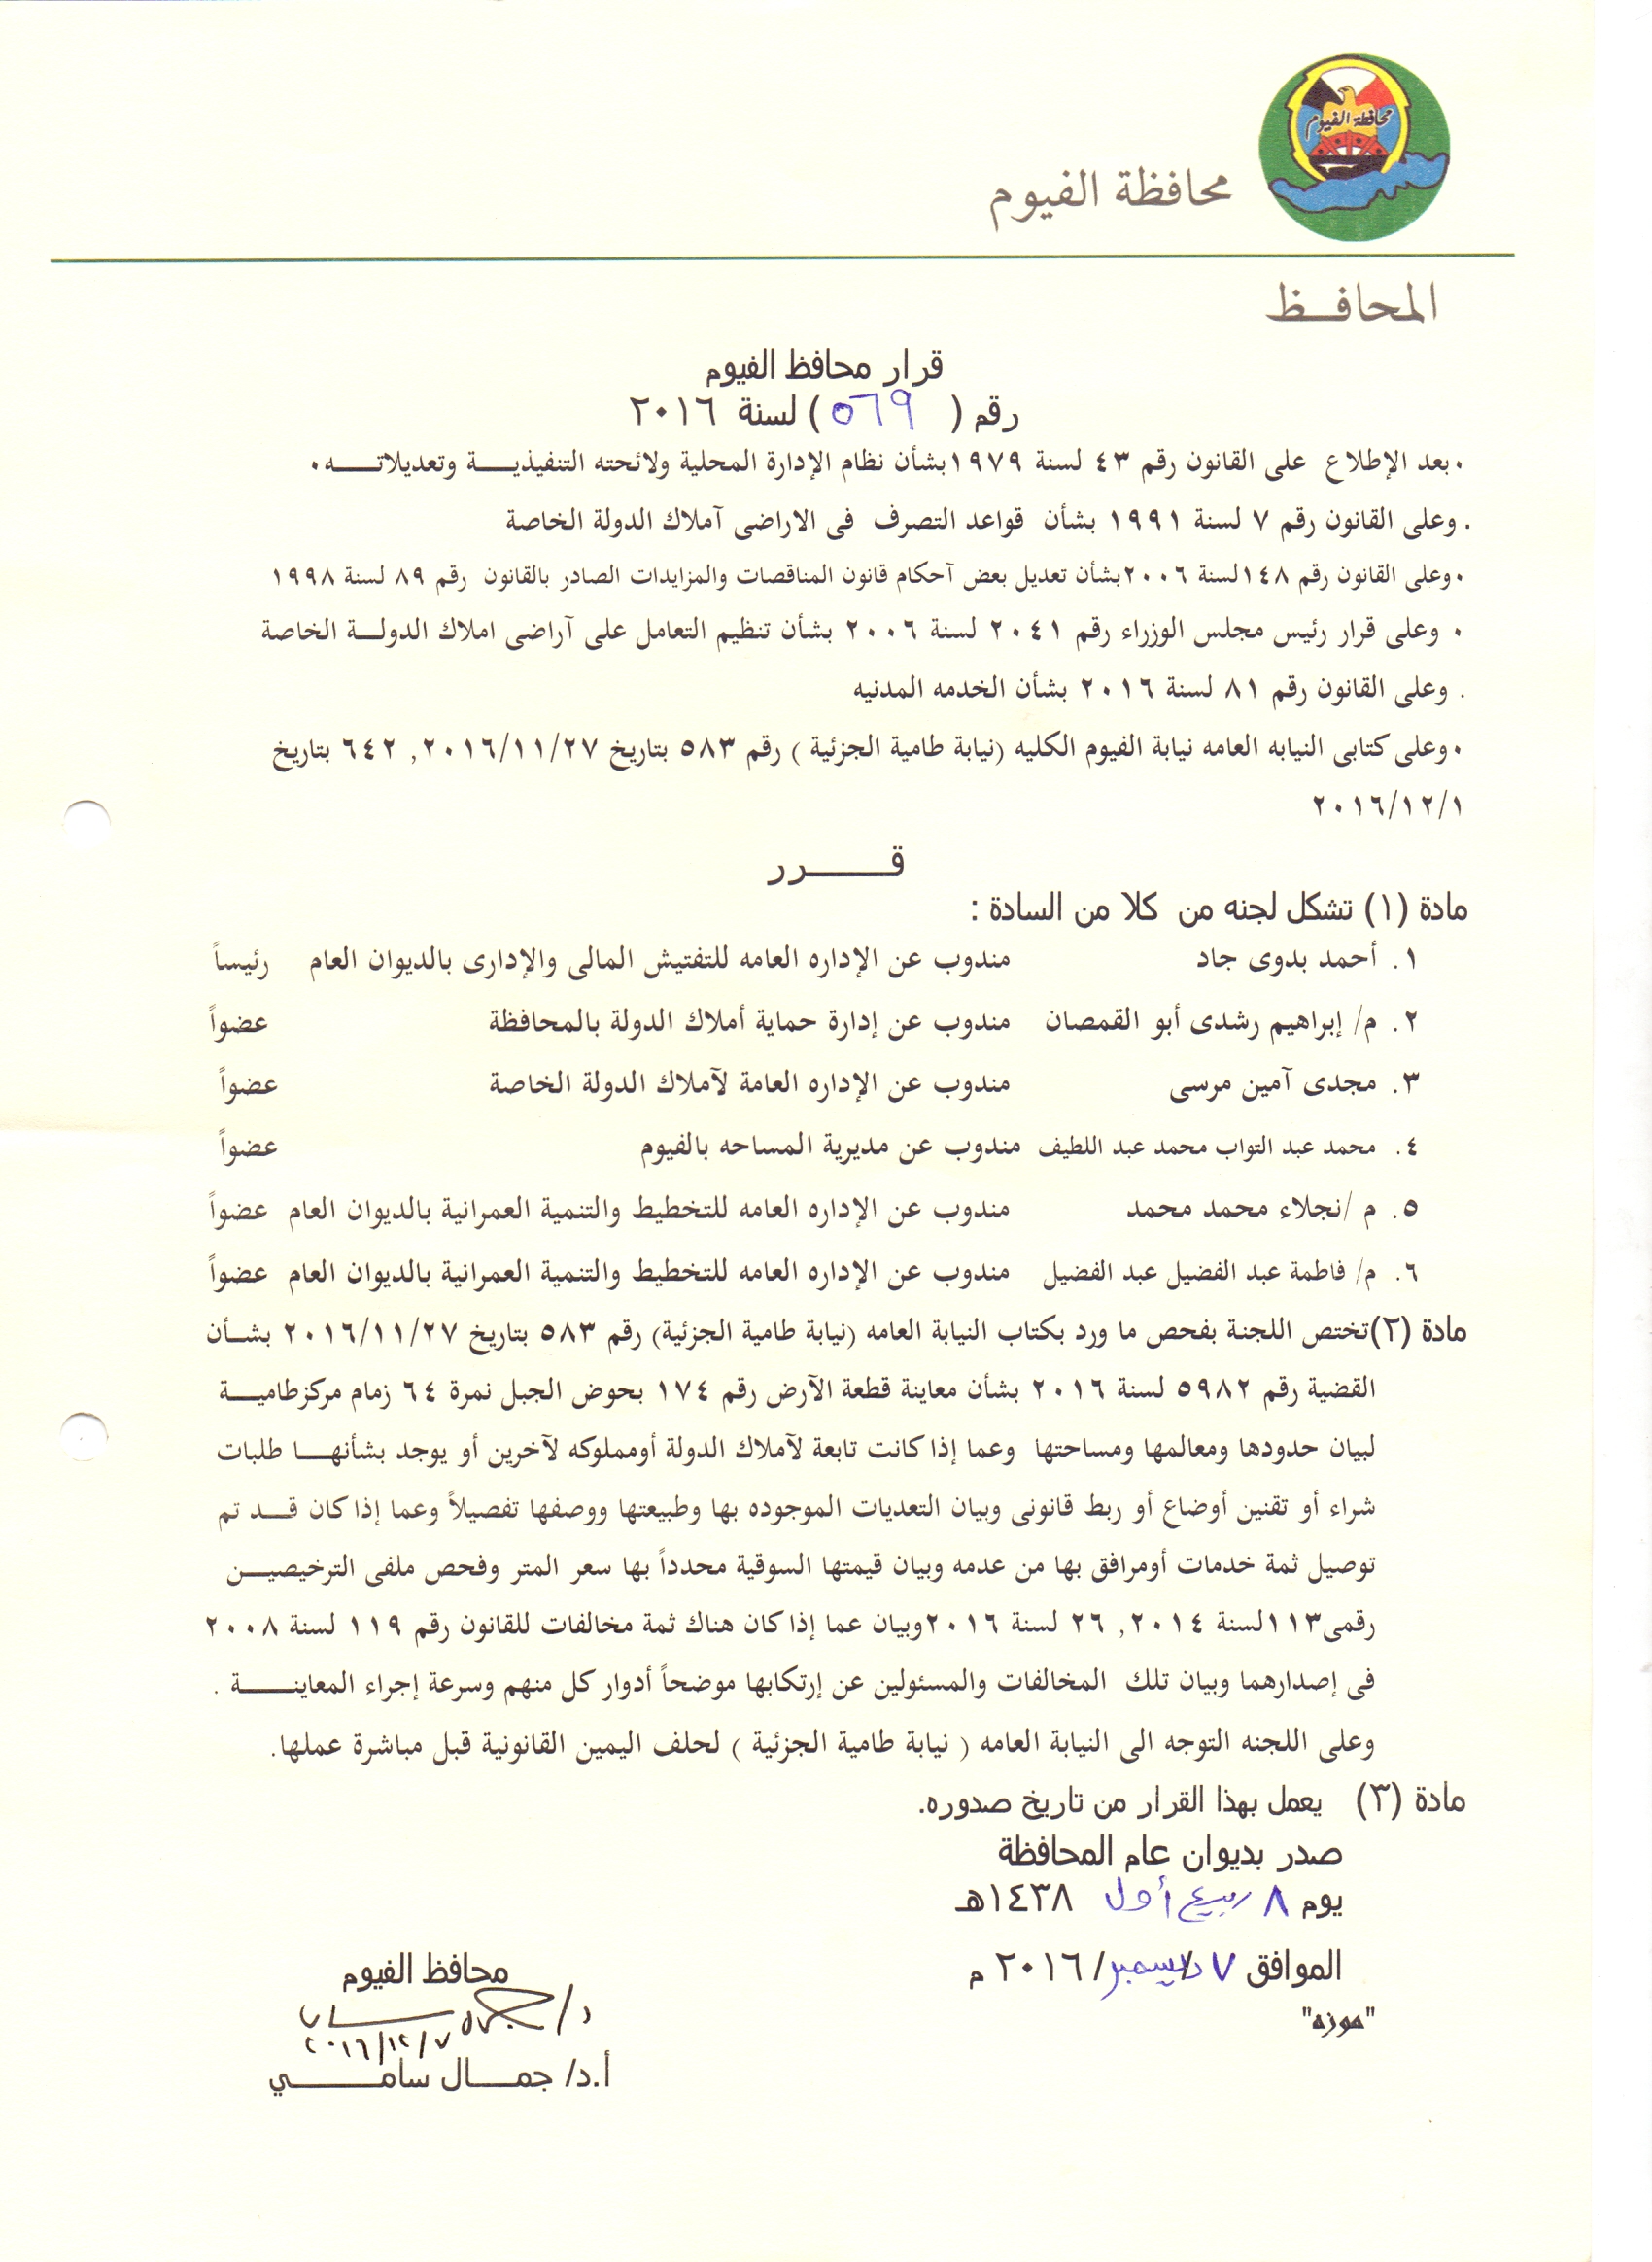 محافظة الفيوم
محافظة الفيوم
المحافـــظ
قرار محافظ الفيوم
رقم ( ٥٦٩ ) لسنة ٢٠١٦
٠بعد الإطلاع على القانون رقم ٤٣ لسنة ١٩٧٩بشأن نظام الإدارة المحلية ولائحته التنفيذيــــة وتعديلاتــــه٠
. وعلى القانون رقم ٧ لسنة ١٩٩١ بشأن قواعد التصرف فى الاراضى آملاك الدولة الخاصة
٠وعلى القانون رقم ١٤٨لسنة ٢٠٠٦بشأن تعديل بعض آحكام قانون المناقصات والمزايدات الصادر بالقانون رقم ٨٩ لسنة ١٩٩٨
٠ وعلى قرار رئيس مجلس الوزراء رقم ٢٠٤١ لسنة ٢٠٠٦ بشأن تنظيم التعامل على آراضى املاك الدولــة الخاصة
. وعلى القانون رقم ٨١ لسنة ٢٠١٦ بشأن الخدمه المدنيه
٠وعلى كتابى النيابه العامه نيابة الفيوم الكليه (نيابة طامية الجزئية ) رقم ٥٨٣ بتاريخ ٢٠١٦/١١/٢٧, ٦٤٢ بتاريخ
٢٠١٦/١٢/١
قـــــــرر
مادة (١) تشكل لجنه من كلا من السادة :
١. أحمد بدوى جاد مندوب عن الإداره العامه للتفتيش المالى والإدارى بالديوان العام رئيساً
٢. م/ إبراهيم رشدى أبو القمصان مندوب عن إدارة حماية أملاك الدولة بالمحافظة عضواً
٣. مجدى آمين مرسى مندوب عن الإداره العامة لآملاك الدولة الخاصة عضواً
٤. محمد عبد التواب محمد عبد اللطيف مندوب عن مديرية المساحه بالفيوم عضواً
٥. م /نجلاء محمد محمد مندوب عن الإداره العامه للتخطيط والتنمية العمرانية بالديوان العام عضواً
٦. م/ فاطمة عبد الفضيل عبد الفضيل مندوب عن الإداره العامه للتخطيط والتنمية العمرانية بالديوان العام عضواً
مادة (٢)تختص اللجنة بفحص ما ورد بكتاب النيابة العامه (نيابة طامية الجزئية) رقم ٥٨٣ بتاريخ ٢٠١٦/١١/٢٧ بشــأن
القضية رقم ٥٩٨٢ لسنة ٢٠١٦ بشأن معاينة قطعة الآرض رقم ١٧٤ بحوض الجبل نمرة ٦٤ زمام مركزطاميــــة
لبيان حدودها ومعالمها ومساحتها وعما إذا كانت تابعة لآملاك الدولة أومملوكه لآخرين أو يوجد بشأنهـــا طلبات
شراء أو تقنين أوضاع أو ربط قانونى وبيان التعديات الموجوده بها وطبيعتها ووصفها تفصيلاً وعما إذا كان قـــد تم
توصيل ثمة خدمات أومرافق بها من عدمه وبيان قيمتها السوقية محدداً بها سعر المتر وفحص ملفى الترخيصيــن
رقمى١١٣لسنة ٢٠١٤, ٢٦ لسنة ٢٠١٦وبيان عما إذا كان هناك ثمة مخالفات للقانون رقم ١١٩ لسنة ٢٠٠٨
فى إصدارهما وبيان تلك المخالفات والمسئولين عن إرتكابها موضحاً أدوار كل منهم وسرعة إجراء المعاينـــــة .
وعلى اللجنه التوجه الى النيابة العامه ( نيابة طامية الجزئية ) لحلف اليمين القانونية قبل مباشرة عملها.
مادة (٣) يعمل بهذا القرار من تاريخ صدوره.
صدر بديوان عام المحافظة
يوم ٨ ربيع أول ١٤٣٨هـ
الموافق ٧ /ديسمبر/ ٢٠١٦ م
"موزه"
محافظ الفيوم
٢٠١٦/١٢/٧
أ.د/ جمـــال سامــــــي